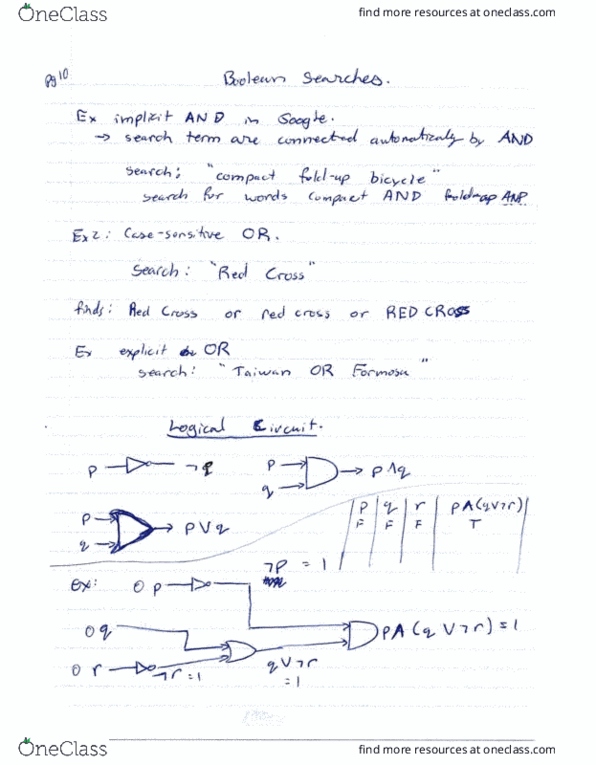 OneClass
find more resources at oneclass.com
pg 10
Boolean Searches.
Ex implicit AND in Google.
→ search term are connected automatically by AND
search; "compact fold-up bicycle"
search for words compact AND fold-up AND
Ex2: Case-sensitive OR.
Search: "Red Cross"
finds: Red Cross or red cross or RED CROSS
Ex explicit OR
search: "Taiwan OR Formosa"
Logical Circuit.
p ¬q
p q p∧q
p q p∨q
p q r p∧(q∨¬r)
F F F T
¬p = 1
Ex: 0 p
0 q
p∧(q∨¬r)=1
0 r ¬r=1 q∨¬r =1
OneClass
find more resources at oneclass.com